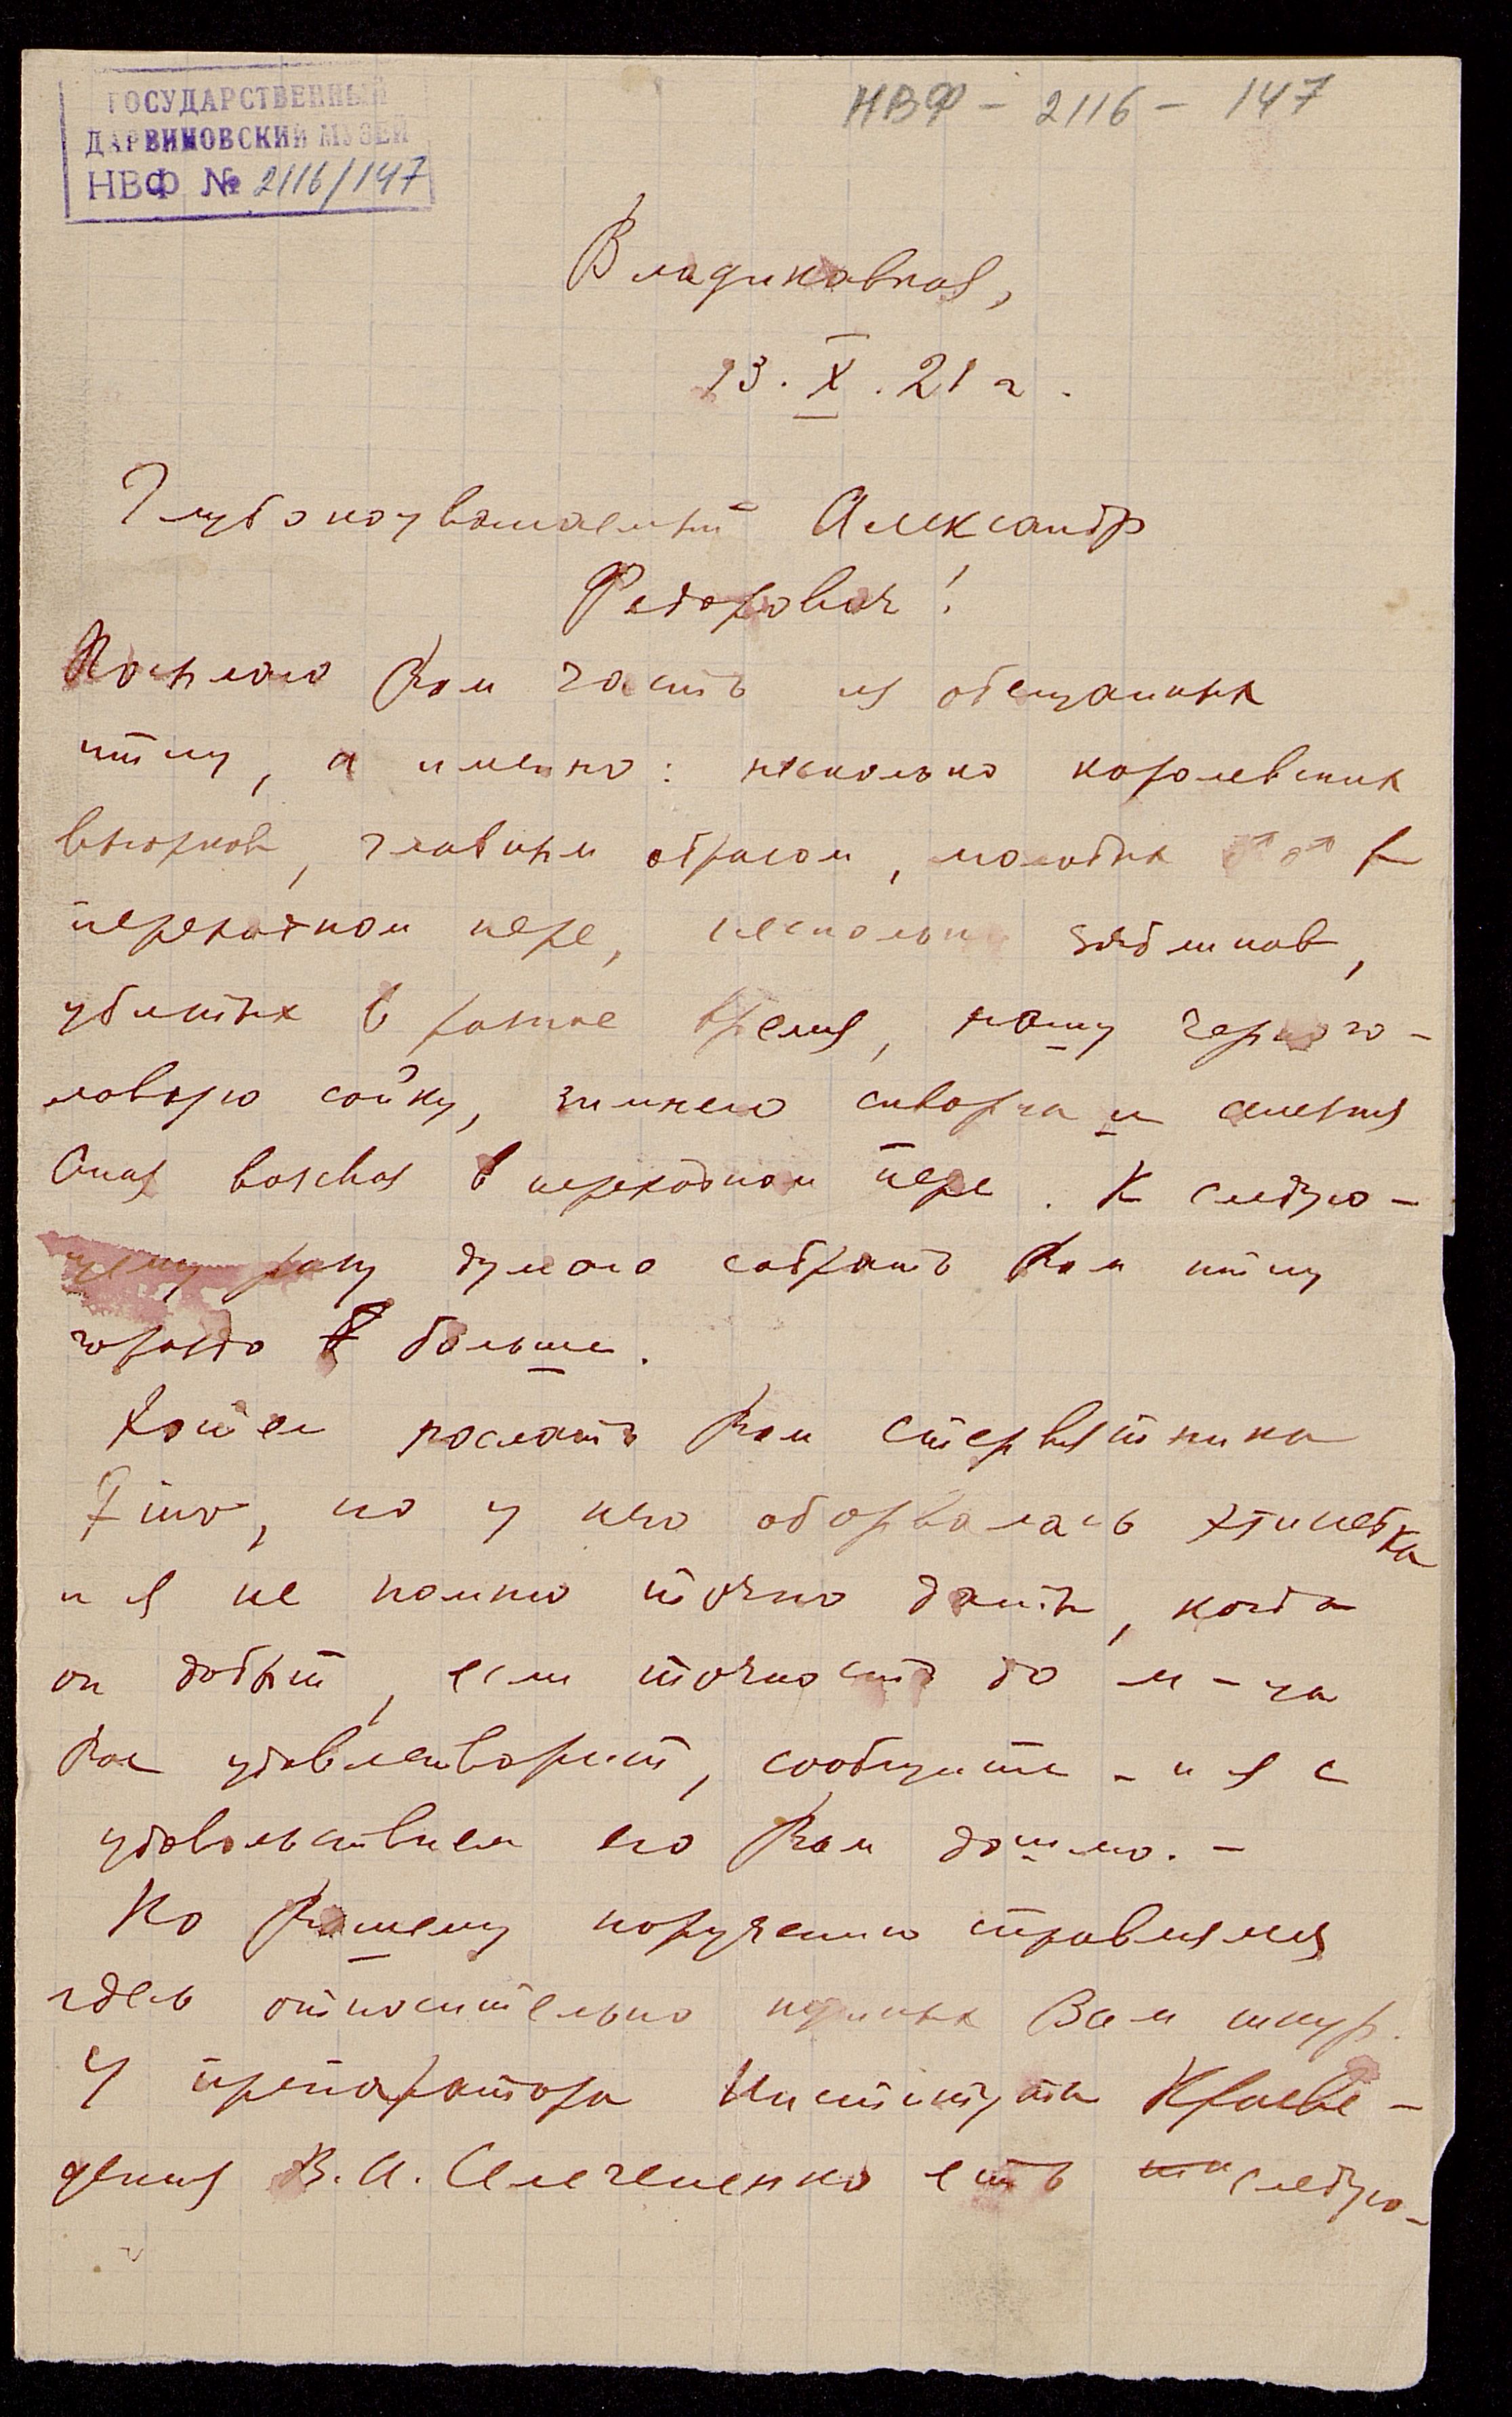 ГОСУДАРСТВЕННЫЙ
ДАРВИНОВСКИЙ МУЗЕЙ
НВФ № 2116/147
НВФ - 2116 - 147
Владикавказ,
23. X. 21 г.
Глубокоуважаемый Александр
Федорович!
Посылаю Вам часть из обещанных
птиц, а именно: несколько королевских
вьюрков, главным образом, молодых ♂♂ в
переходном пере, несколько зябликов,
убитых в разное время, нашу черного-
ловую сойку, зимнего скворца и селезня
Anas boschas в переходном пере. К следую-
щему разу думаю собрать Вам птиц
гораздо больше.
Хотел послать Вам стервятника
juv, но у него оборвалась этикетка
и я не помню точно даты, когда
он добыт, если точность до м-ца
Вас удовлетворит, сообщите - и я с
удовольствием его Вам дошлю. -
По Вашему поручению справлялся
здесь относительно нужных Вам шкур.
У препаратора Института Краеве-
дения В. А. есть следую-